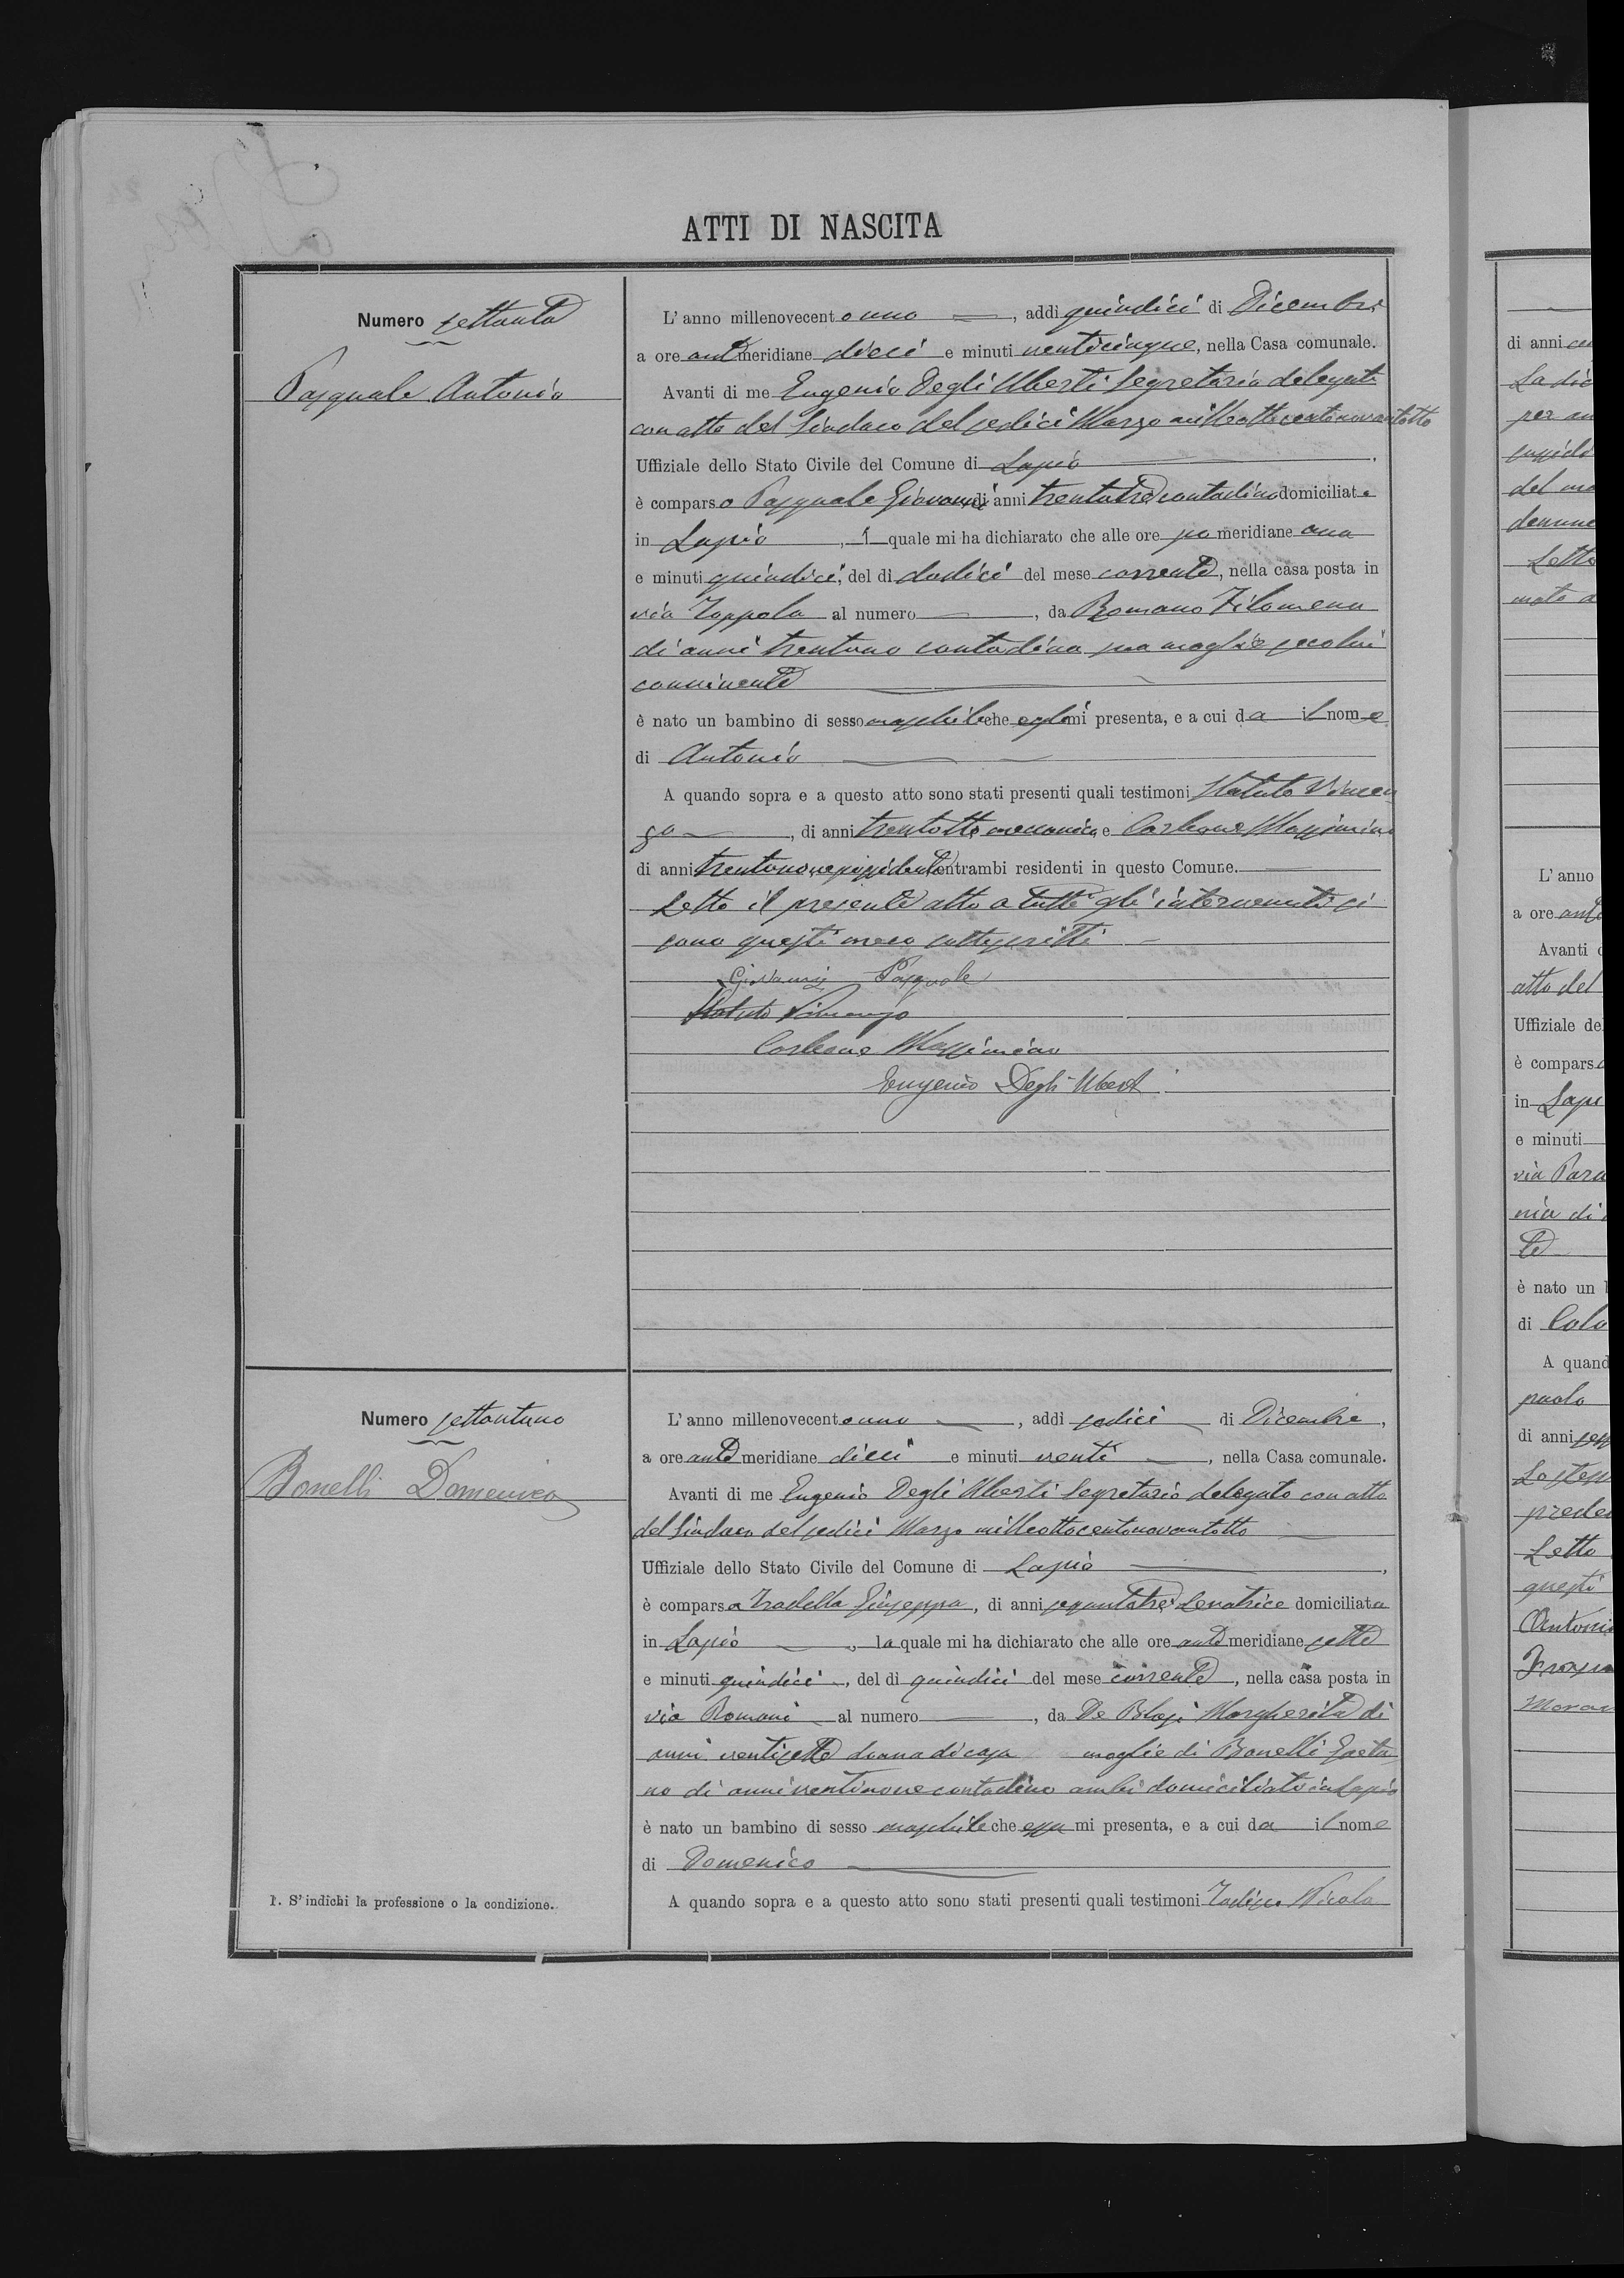 ATTI DI NASCITA
Numero settanta
Pasquale Antonio
L'anno millenovecento uno, addì quindici di Dicembre
a ore antemeridiane dieci e minuti venticinque, nella Casa comunale.
Avanti di me Eugenio Degli Uberti Segretario delegato
con atto del Sindaco del sedici Marzo milleottocentonovantotto
Uffiziale dello Stato Civile del Comune di Lapio
è comparso Pasquale Giovanni di anni trentatre contadino domiciliato
in Lapio, il quale mi ha dichiarato che alle ore pomeridiane una
e minuti quindici, del dì dodici del mese corrente, nella casa posta in
via Toppola al numero, da Romano Filomena
di anni trentuno contadina sua moglie secolui
convivente
è nato un bambino di sesso maschile che egli mi presenta, e a cui da il nome
di Antonio
A quando sopra e a questo atto sono stati presenti quali testimoni Statuto Vincen
zo, di anni trentotto meccanico e Carbone Massimino
di anni trentanove possidente entrambi residenti in questo Comune.
Letto il presente atto a tutti gli intervenuti si
sono questi meco sottoscritti
Giovanni Pasquale
Statuto Vincenzo
Carbone Massimino
Eugenio Degli Uberti
Numero settantuno
Bonelli Domenico
L'anno millenovecento uno, addì sedici di Dicembre,
a ore antemeridiane dieci e minuti venti, nella Casa comunale.
Avanti di me Eugenio Degli Uberti Segretario delegato con atto
del Sindaco del sedici Marzo milleottocentonovantotto
Uffiziale dello Stato Civile del Comune di Lapio,
è comparsa Giuseppa, di anni Levatrice domiciliata
in Lapio, la quale mi ha dichiarato che alle ore antemeridiane sette
e minuti quindici, del dì quindici del mese corrente, nella casa posta in
via Romani al numero, da De Blasi Margherita di
anni ventisette donna di casa moglie di Bonelli Gaeta
no di anni ventinove contadino ambi domiciliati in Lapio
è nato un bambino di sesso maschile che essa mi presenta, e a cui da il nome
di Domenico
A quando sopra e a questo atto sono stati presenti quali testimoni Nicola
1. S'indichi la professione o la condizione.
di anni
per
del
Letto
L'anno
a ore ante
Avanti
atto del
Uffiziale de
è compars
in Lapi
e minuti
via
nia di
te
è nato un
di
A quand
di anni
Letto
questi